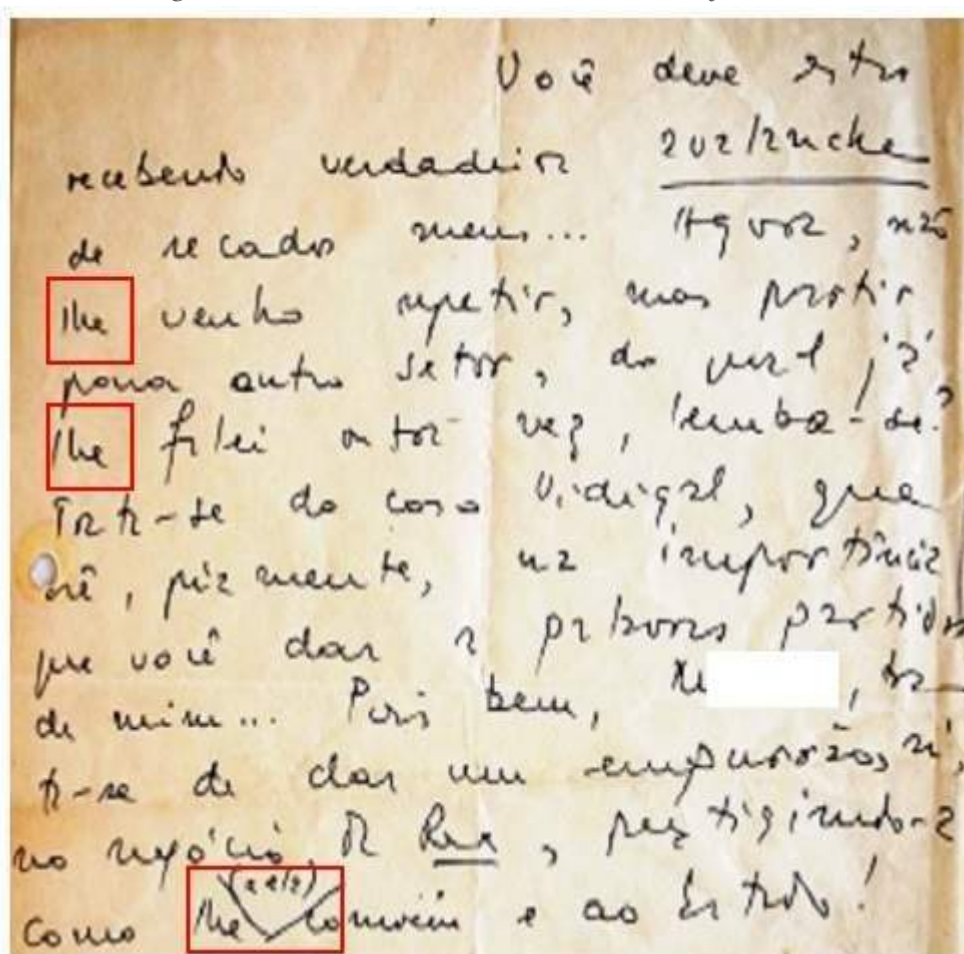 Você deve estar
recebendo verdadeira avalanche
de recados meus... Agora, não
lhe venho repetir, mas partir
para outro setor, do qual já
lhe falei outra vez, lembra-se?
Trata-se do caso Vidigal, que
crê, piamente, na importância
que você dar a palavras partidas
de mim... Pois bem, tra-
ta-se de dar um empurrãozi,
no negócio, da Rua, prestigiando-a
(a ela)
como lhe convém e ao Estado!